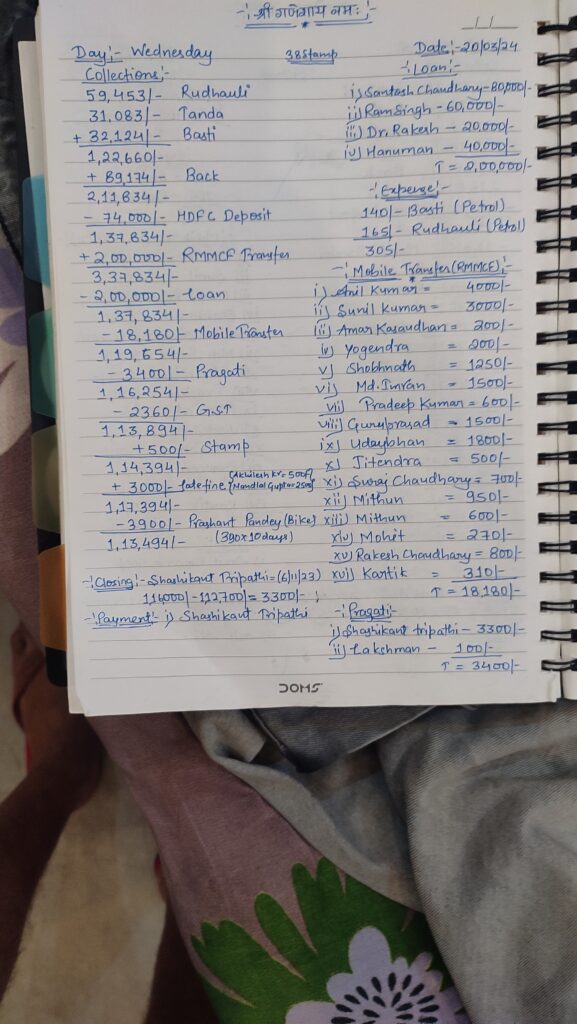 -: श्री गणेशाय नमः :-
Day:- Wednesday
38 Stamp
Date:- 20/03/24
Collections:-
59,453/- Rudhauli
31,083/- Tanda
+ 32,124/- Basti
1,22,660/-
+ 89,174/- Back
2,11,834/-
- 74,000/- HDFC Deposit
1,37,834/-
+ 2,00,000/- RMMCF Transfer
3,37,834/-
- 2,00,000/- Loan
1,37,834/-
- 18,180/- Mobile Transfer
1,19,654/-
- 3400/- Pragati
1,16,254/-
- 2360/- GST
1,13,894/-
+ 500/- Stamp
1,14,394/-
+ 3000/- Late fine (Akhilesh Kr = 500/-
Nandlal Gupta = 2500)
1,17,394/-
- 3900/- Prashant Pandey (Bike)
(390 x 10 days)
1,13,494/-
-: Closing:- Shashikant Tripathi = (6/11/23)
116000/- - 112700/- = 3300/-
-: Payment:- i) Shashikant Tripathi
-: Loan :-
i) Santosh Chaudhary - 80,000/-
ii) Ram Singh - 60,000/-
iii) Dr. Rakesh - 20,000/-
iv) Hanuman - 40,000/-
T = 2,00,000/-
-: Expense :-
140/- Basti (Petrol)
165/- Rudhauli (Petrol)
305/-
-: Mobile Transfer (RMMCF):-
i) Anil Kumar = 4000/-
ii) Sunil Kumar = 3000/-
iii) Amar Kasaudhan = 200/-
iv) Yogendra = 200/-
v) Shobhnath = 1250/-
vi) Md. Imran = 1500/-
vii) Pradeep Kumar = 600/-
viii) Guruprasad = 1500/-
ix) Udaybhan = 1800/-
x) Jitendra = 500/-
xi) Suraj Chaudhary = 700/-
xii) Mithun = 950/-
xiii) Mithun = 600/-
xiv) Mohit = 270/-
xv) Rakesh Chaudhary = 800/-
xvi) Kartik = 310/-
T = 18,180/-
-: Pragati:-
i) Shashikant tripathi - 3300/-
ii) Lakshman - 100/-
T = 3400/-
DOMS